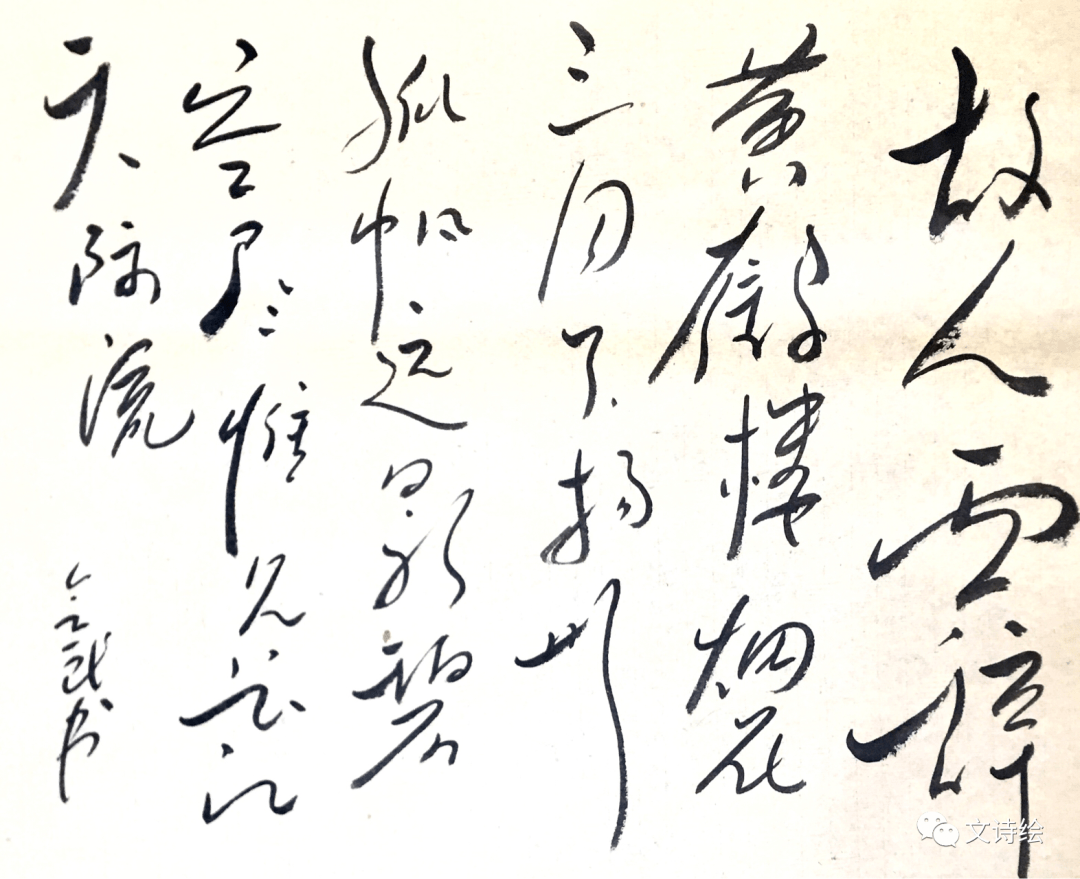 故人西辞
黄鹤楼烟花
三月下扬州
孤帆远影碧
空尽惟见长江
天际流
书
文诗绘